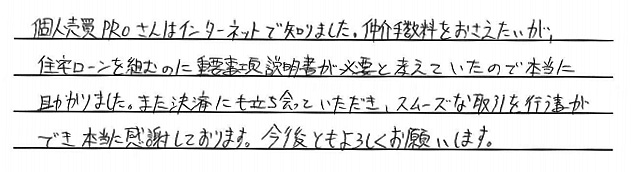 個人売買PROさんはインターネットで知りました。仲介手数料をおさえたいが、
住宅ローンを組むのに重要事項説明書が必要と考えていたので本当に
助かりました。また決済にも立ち会っていただき、スムーズな取引を行う事が
でき本当に感謝しております。今後ともよろしくお願いします。